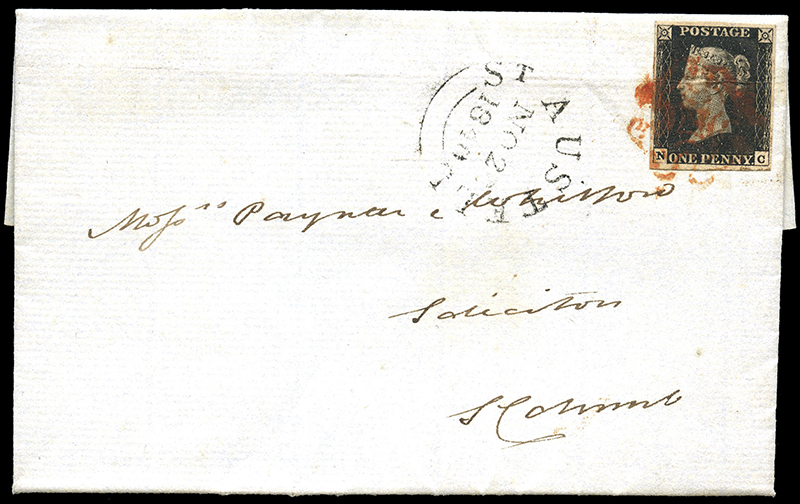 POSTAGE
N ONE PENNY C
ST AUSTELL
NO 2
1840
Mess.rs Paynter & Whitford
Solicitors
St Columb